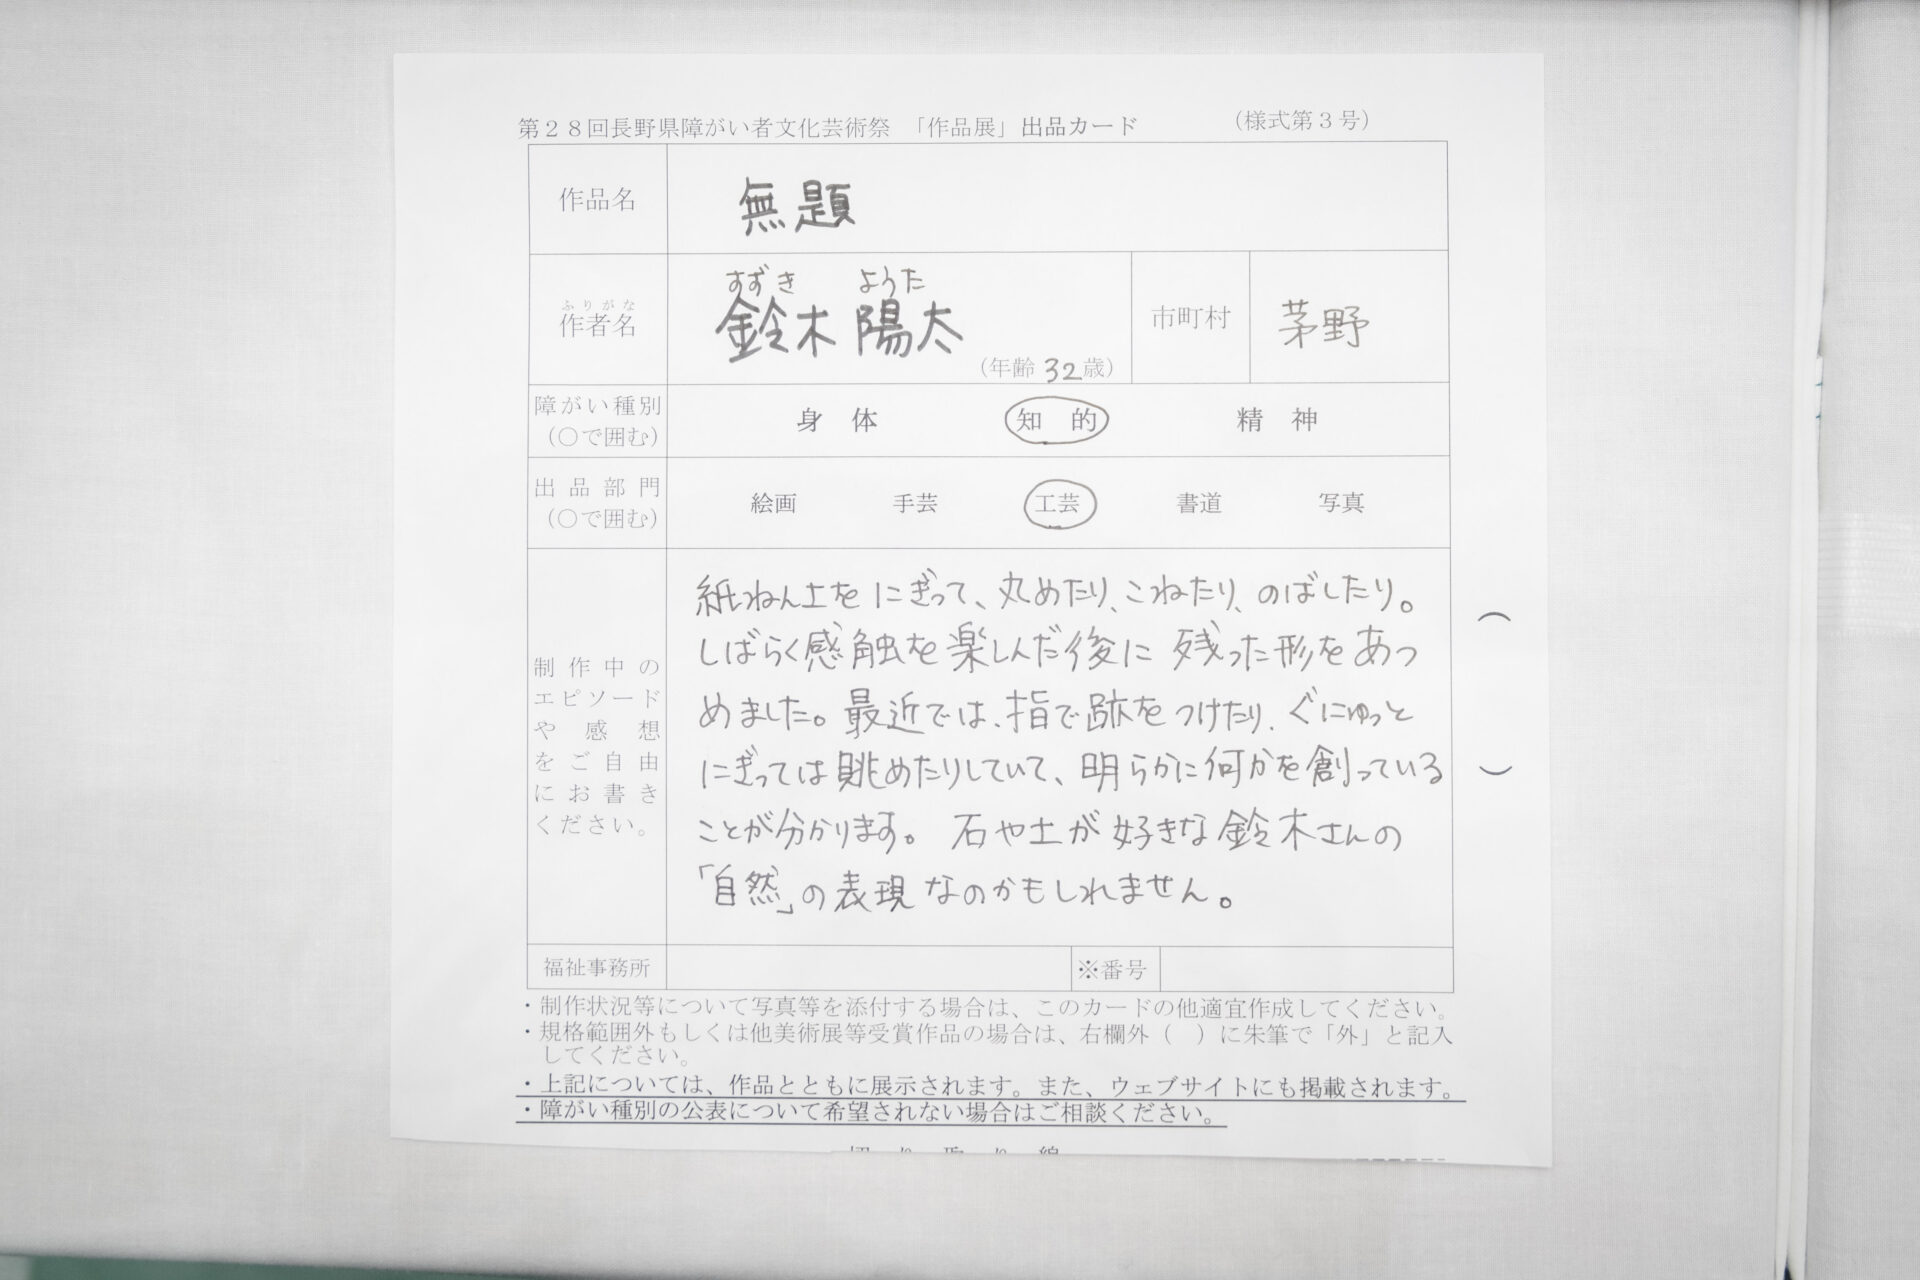 第２８回長野県障がい者文化芸術祭　「作品展」出品カード　（様式第３号）
作品名　無題
ふりがな　すずき　ようた
作者名　鈴木　陽太　（年齢 32 歳）　市町村　茅野
障がい種別　身　体　知　的　精　神
（○で囲む）
出品部門　絵画　手芸　工芸　書道　写真
（○で囲む）
制作中の
エピソード
や感想
をご自由
にお書き
ください。
紙ねん土を にぎって、丸めたり、こねたり、のばしたり。
しばらく感触を楽しんだ後に 残った形をあつ
めました。最近では、指で跡をつけたり、ぐにゅっと
にぎっては眺めたりしていて、明らかに何かを創っている
ことが分かります。石や土が好きな鈴木さんの
「自然」の表現なのかもしれません。
（　）
福祉事務所　※番号
・制作状況等について写真等を添付する場合は、このカードの他適宜作成してください。
・規格範囲外もしくは他美術展等受賞作品の場合は、右欄外（　）に朱筆で「外」と記入
してください。
・上記については、作品とともに展示されます。また、ウェブサイトにも掲載されます。
・障がい種別の公表について希望されない場合はご相談ください。